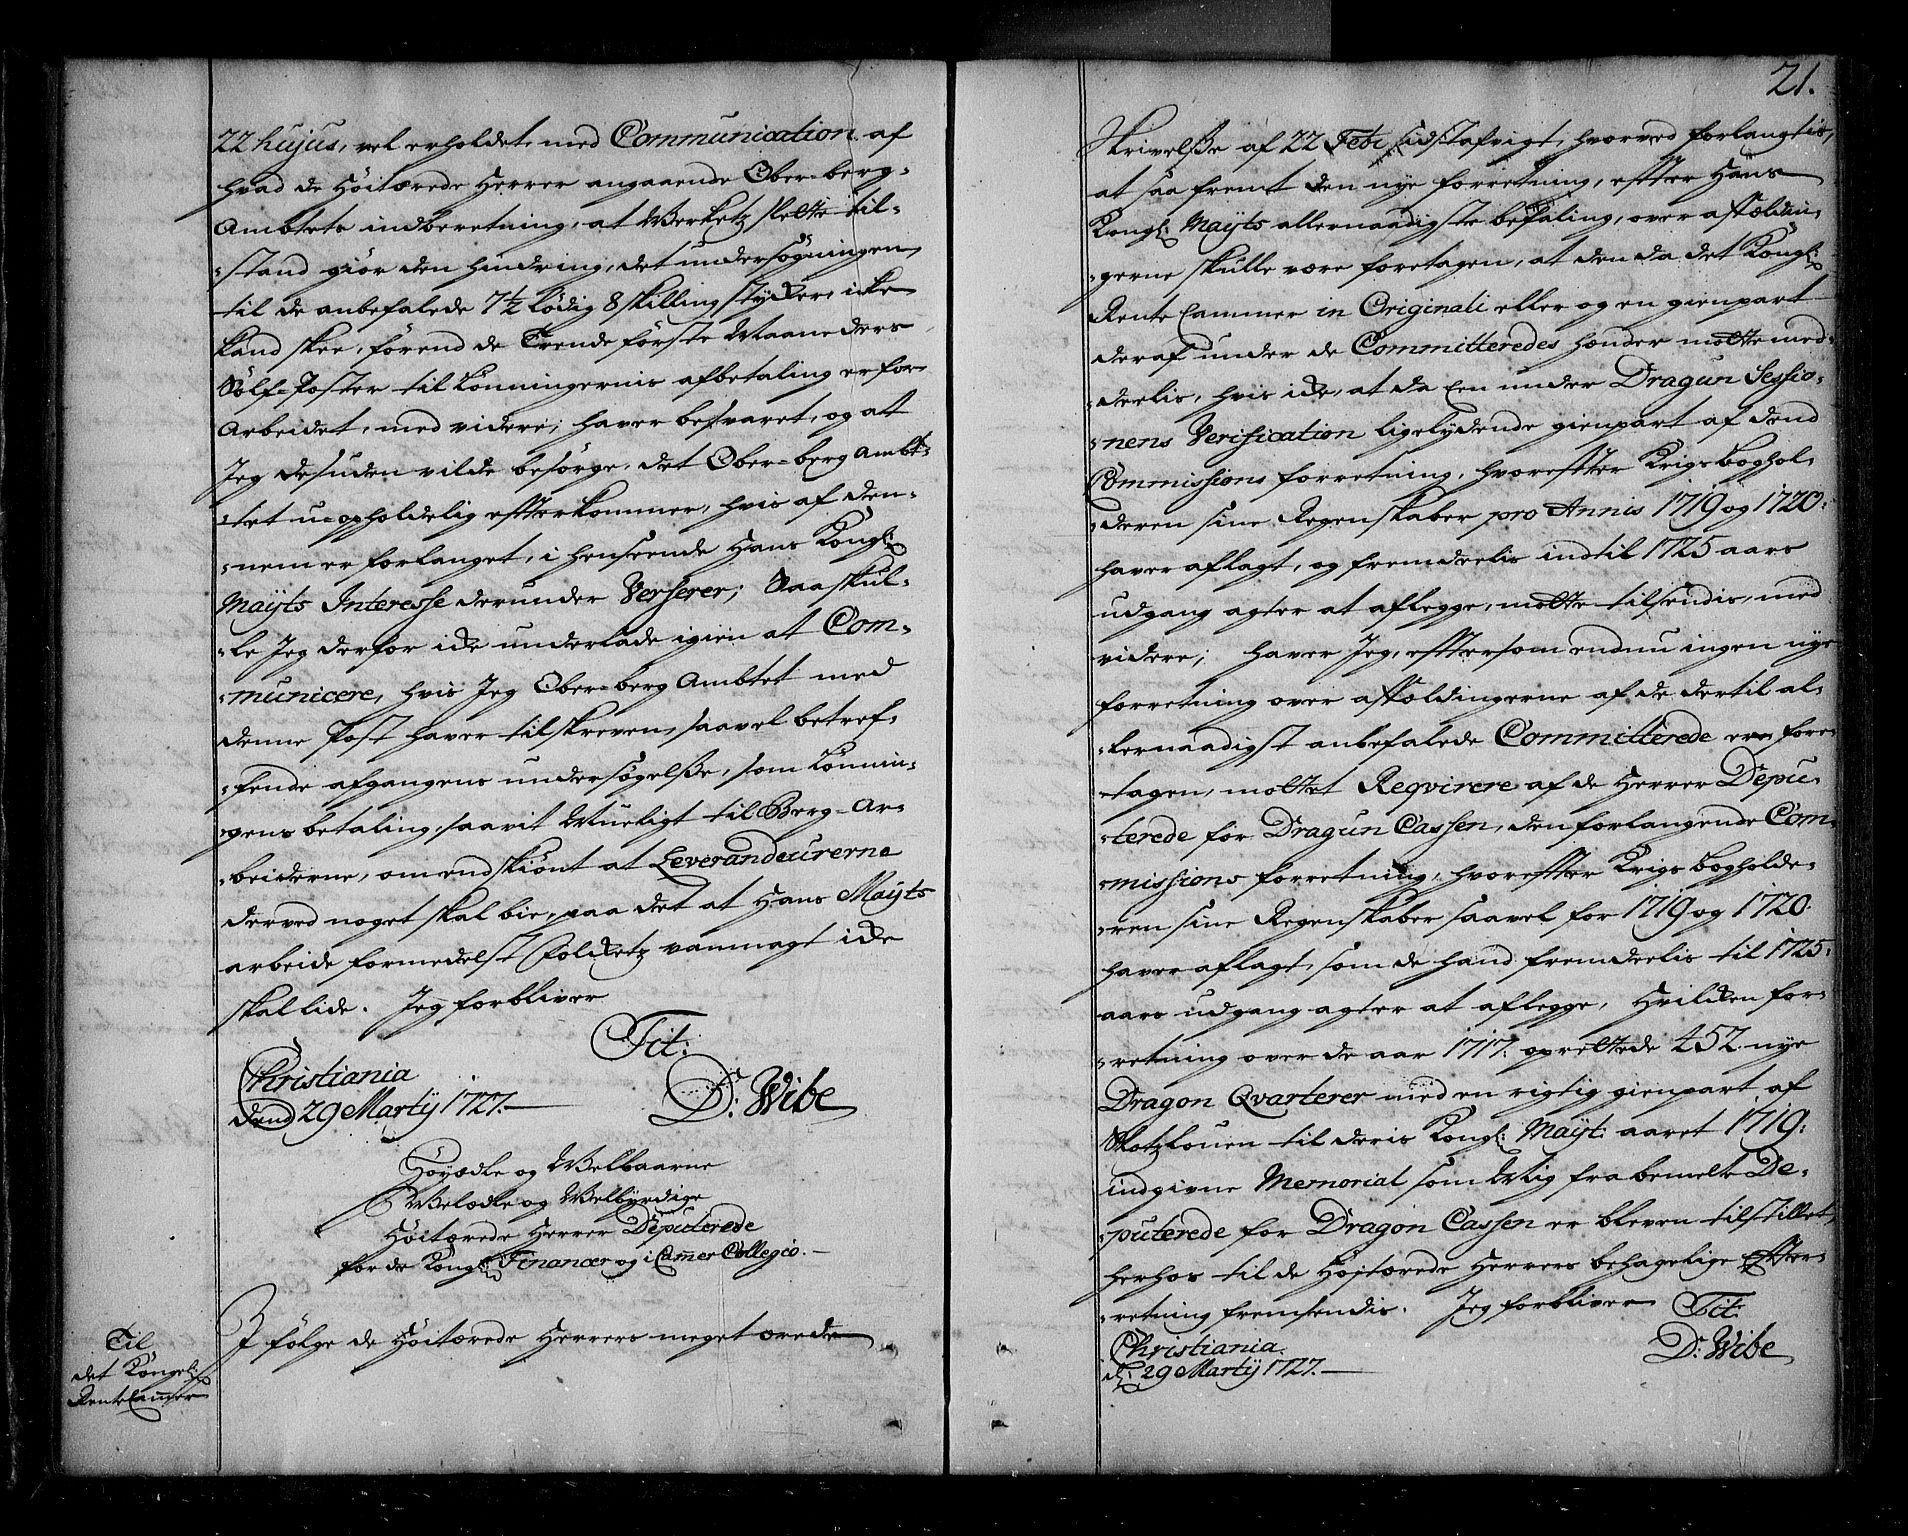 22 hujus, vel erholdet, med Communication af
hvad de Höitærede Herrer angaaende Ober-berg-
Ambtets indberetning, at Werketz slette til-
-stand giör den hindring, det undersögningen
til de anbefalede 7½ Lödig 8 skilling stycker, icke
kand skee, förend de Trende förste Maaneders
Sölf-Poster til Lönningernis afbetaling er for-
Arbeidet, med videre, haver besvaret, og at
Jeg desuden vilde besörge, det Ober-berg Ambt-
-tet u-opholdelig efterkommer, hvis af den-
-nem er forlanget, i henseende Hans Kongl:
Mayts Interesse derunder Verserer; Saa skul-
-le Jeg derfor icke underlade igien at Com-
-municere, hvis Jeg Ober-berg Ambtet med
denne Post haver tilskreven, saavel betref-
-fende afgangens undersögelsse, som Lönnin-
-gens betaling, saavit Mueligt til Berg-Ar-
-beiderne, omendskiönt at Leverandeurerne
derved noget skal bie, paa det at Hans Mayts
arbeide formedelst Folketz vanmagt icke
skal lide. Jeg forbliver
Tit:
Christiania
dend 29 Martij 1727.
D: Wibe
Höyædle og Welbaarne
Welædle og Welbyrdige
Höitærede Herrer Deputerede
for de Kongl: Financer og i Cammer Collegio.
Til
det Kongel:
Rente Cammer
I fölge de Höitærede Herrers meget ærede
21.
Skrivelsse af 22 Febr sidstafvigt, hvorved forlangtis,
at saa fremt den nye forretning, efter Hans
Kongl: Mayts allernaadigste befaling, over affældin-
-gerne skulle være foretagen, at den da det Kongl:
Rente Cammer in Originali eller og en gienpart
deraf under de Committeredes hænder motte med-
-deelis, hvis icke, at da een under Dragun Sessio-
-nens Verification ligelydende gienpart af dend
Commissions forretning, hvorefter Krigs Boghol-
-deren sine Regenskaber pro Annis 1719 og 1720
haver aflagt, og fremdeelis indtil 1725 aars
udgang agter at aflegge, motte tilsendis, med
videre; haver Jeg, eftersom endnu ingen nye
forretning over affældingerne af de dertil al-
-lernaadigst anbefalede Committerede er fore-
-tagen, mottet Reqvirere af de Herrer Depu-
-terede for Dragun Cassen, den forlangende Com-
-missions forretning, hvorefter Krigs Bogholde-
-ren sine Regenskaber saavel for 1719 og 1720
haver aflagt, som de hand fremdeelis til 1725
aars udgang agter at aflegge, Hvilcken for-
-retning over de aar 1717. oprettede 452 nye
Dragon Qvarterer med en rigtig gienpart af
Slotzloven til deris Kongl: Mayt: aaret 1719.
indgivne Memorial som Mig fra bemelte De-
-puterede for Dragon Cassen er bleven tilstillet,
herhos til de Höjtærede Herrers behagelige Efter-
-retning fremsendis. Jeg forbliver Tit:
Christiania.
d: 29 Martij 1727.
D: Wibe